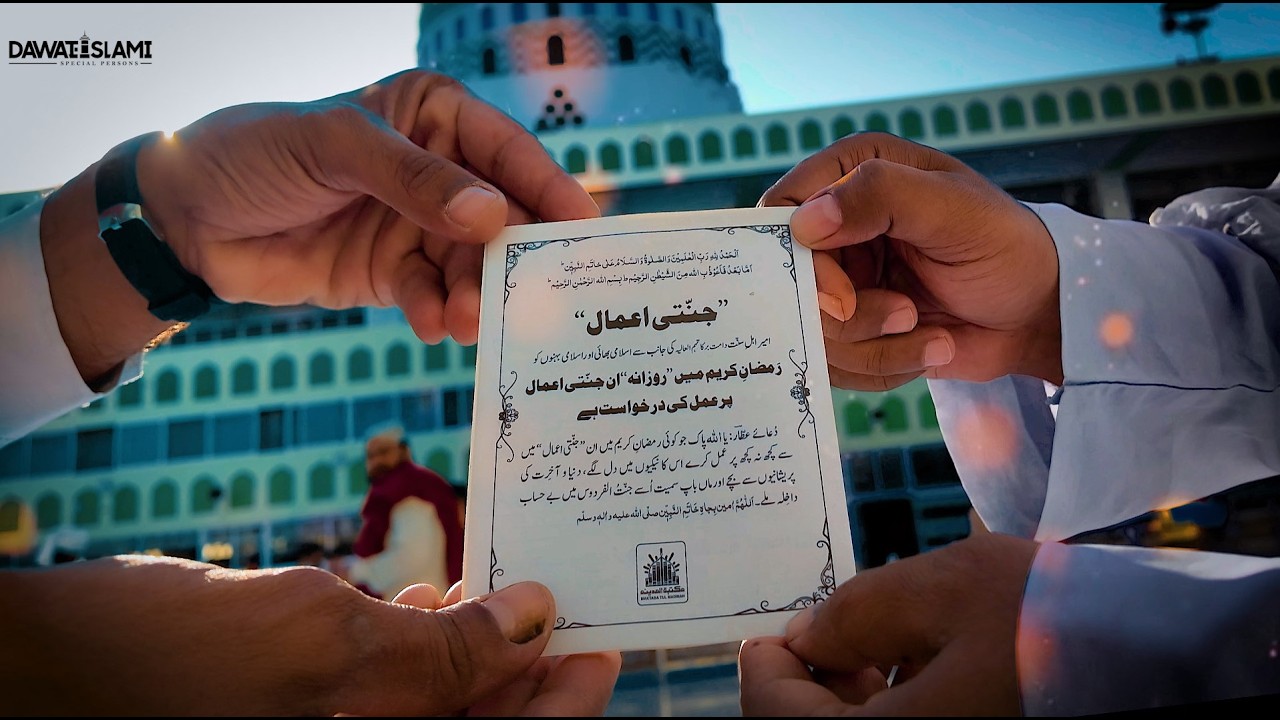 DAWAT-E-ISLAMI
SPECIAL PERSONS
اَلْحَمْدُ لِلّٰہِ رَبِّ الْعٰلَمِیْنَ وَ الصَّلٰوۃُ وَ السَّلَامُ عَلٰی خَاتَمِ النَّبِیّٖنَ ط
اَمَّا بَعْدُ فَاَعُوْذُ بِاللّٰہِ مِنَ الشَّیْطٰنِ الرَّجِیْمِ ط بِسْمِ اللّٰہِ الرَّحْمٰنِ الرَّحِیْمِ ط
”جنّتی اعمال“
امیرِ اہلِ سنّت دامت برکاتہم العالیہ کی جانب سے اسلامی بھائی اور اسلامی بہنوں کو
رَمضانِ کریم میں ”روزانہ“ ان جنّتی اعمال
پر عمل کی درخواست ہے
دُعائے عطّار: یا اللہ پاک جو کوئی رمضانِ کریم میں ان ”جنّتی اعمال“ میں
سے کچھ نہ کچھ پر عمل کرے اس کا نیکیوں میں دل لگے، دنیا و آخرت کی
پریشانیوں سے بچے اور ماں باپ سمیت اُسے جنّتُ الفردوس میں بے حساب
داخِلہ ملے۔ اَللّٰھُمَّ اٰمین بِجاہِ خاتَمِ النَّبِیّٖن صلی اللہ علیہ واٰلہٖ وسلّم
مکتبۃ المدینہ
MAKTABA TUL MADINAH